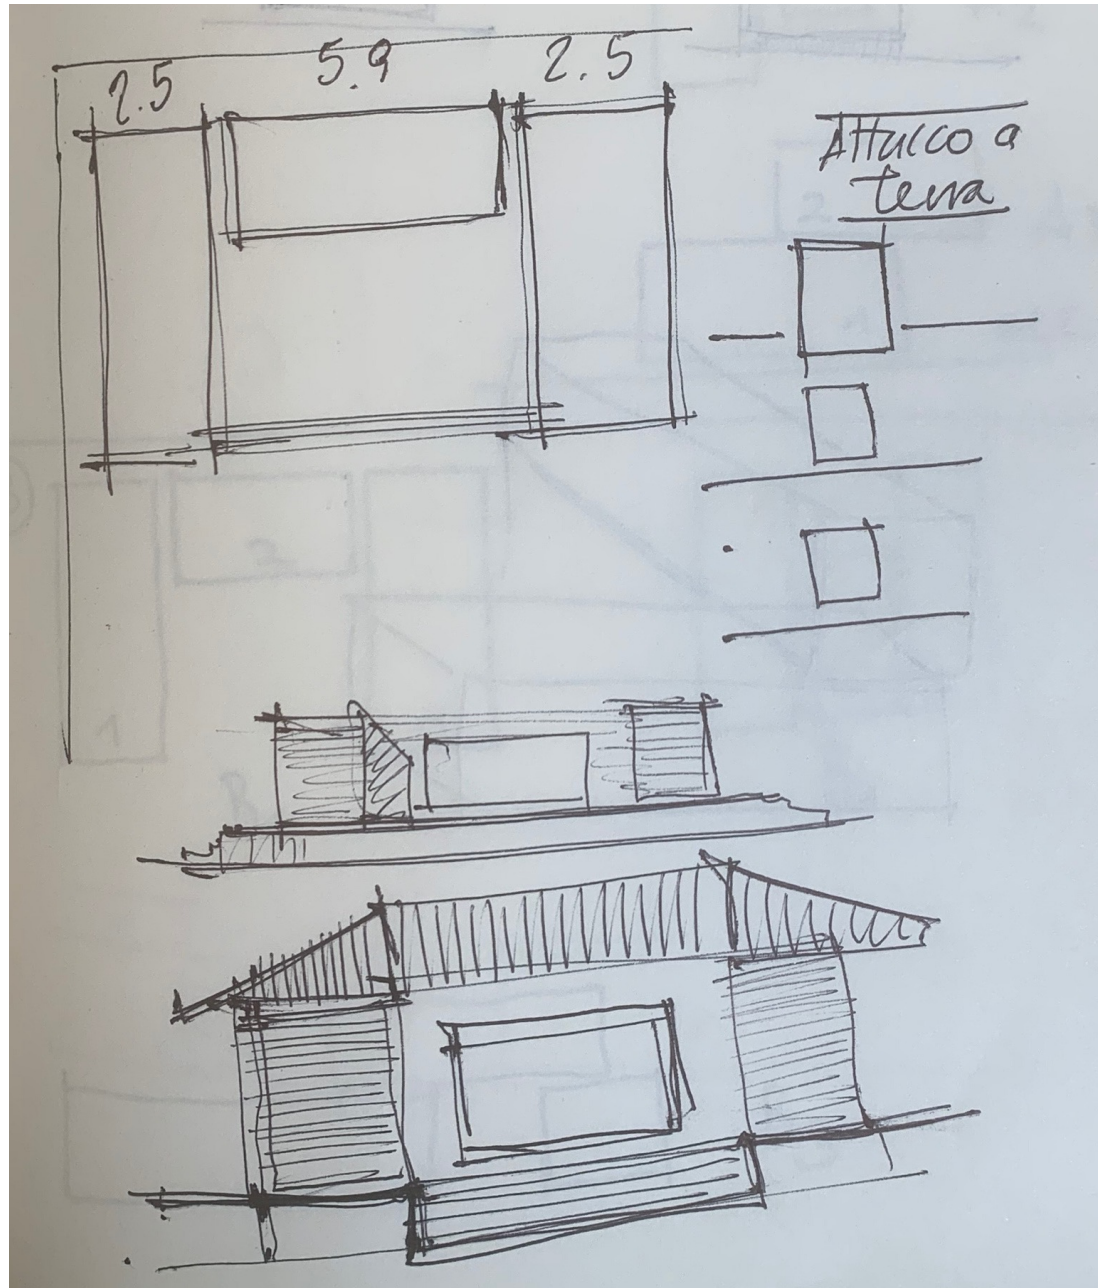 2.5 5.9 2.5
Attacco a
terra
2
2
1